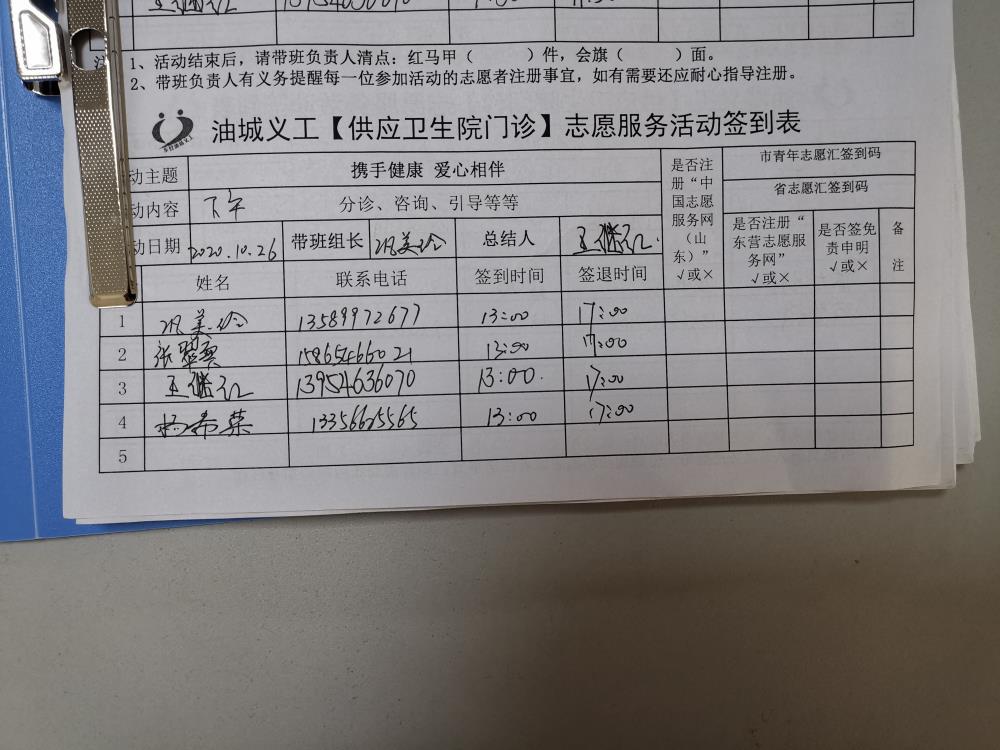 1、活动结束后，请带班负责人清点：红马甲（ ）件，会旗（ ）面。
2、带班负责人有义务提醒每一位参加活动的志愿者注册事宜，如有需要还应耐心指导注册。
油城义工【供应卫生院门诊】志愿服务活动签到表
动主题 携手健康 爱心相伴 是否注册“中国志愿服务网（山东）”√或× 市青年志愿汇签到码
省志愿汇签到码
动内容 下午 分诊、咨询、引导等等
动日期 2020.10.26 带班组长 巩美玲 总结人 王继红 是否注册“东营志愿服务网”√或× 是否签免责申明√或× 备注
姓名 联系电话 签到时间 签退时间
1 巩美玲 13589972677 13:00 17:00
2 张 15865466021 13:00 17:00
3 王继红 13954636070 13:00. 17:00
4 杨希菜 13356625565 13:00 17:00
5